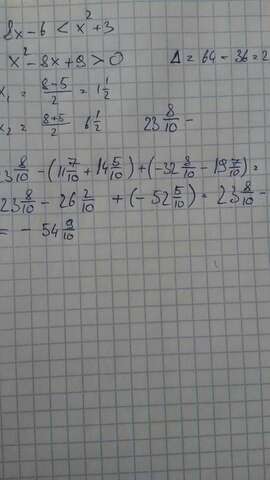 8x-6 < x²+3
x²-8x+9 > 0    Δ = 64 - 36 = 2
x₁ = (8-5)/2 = 1 1/2
x₂ = (8+5)/2  6 1/2    23 8/10 -
23 8/10 - (11 7/10 + 14 5/10) + (-32 8/10 - 19 7/10) =
23 8/10 - 26 2/10 + (- 52 5/10) = 23 8/10 -
= - 54 9/10